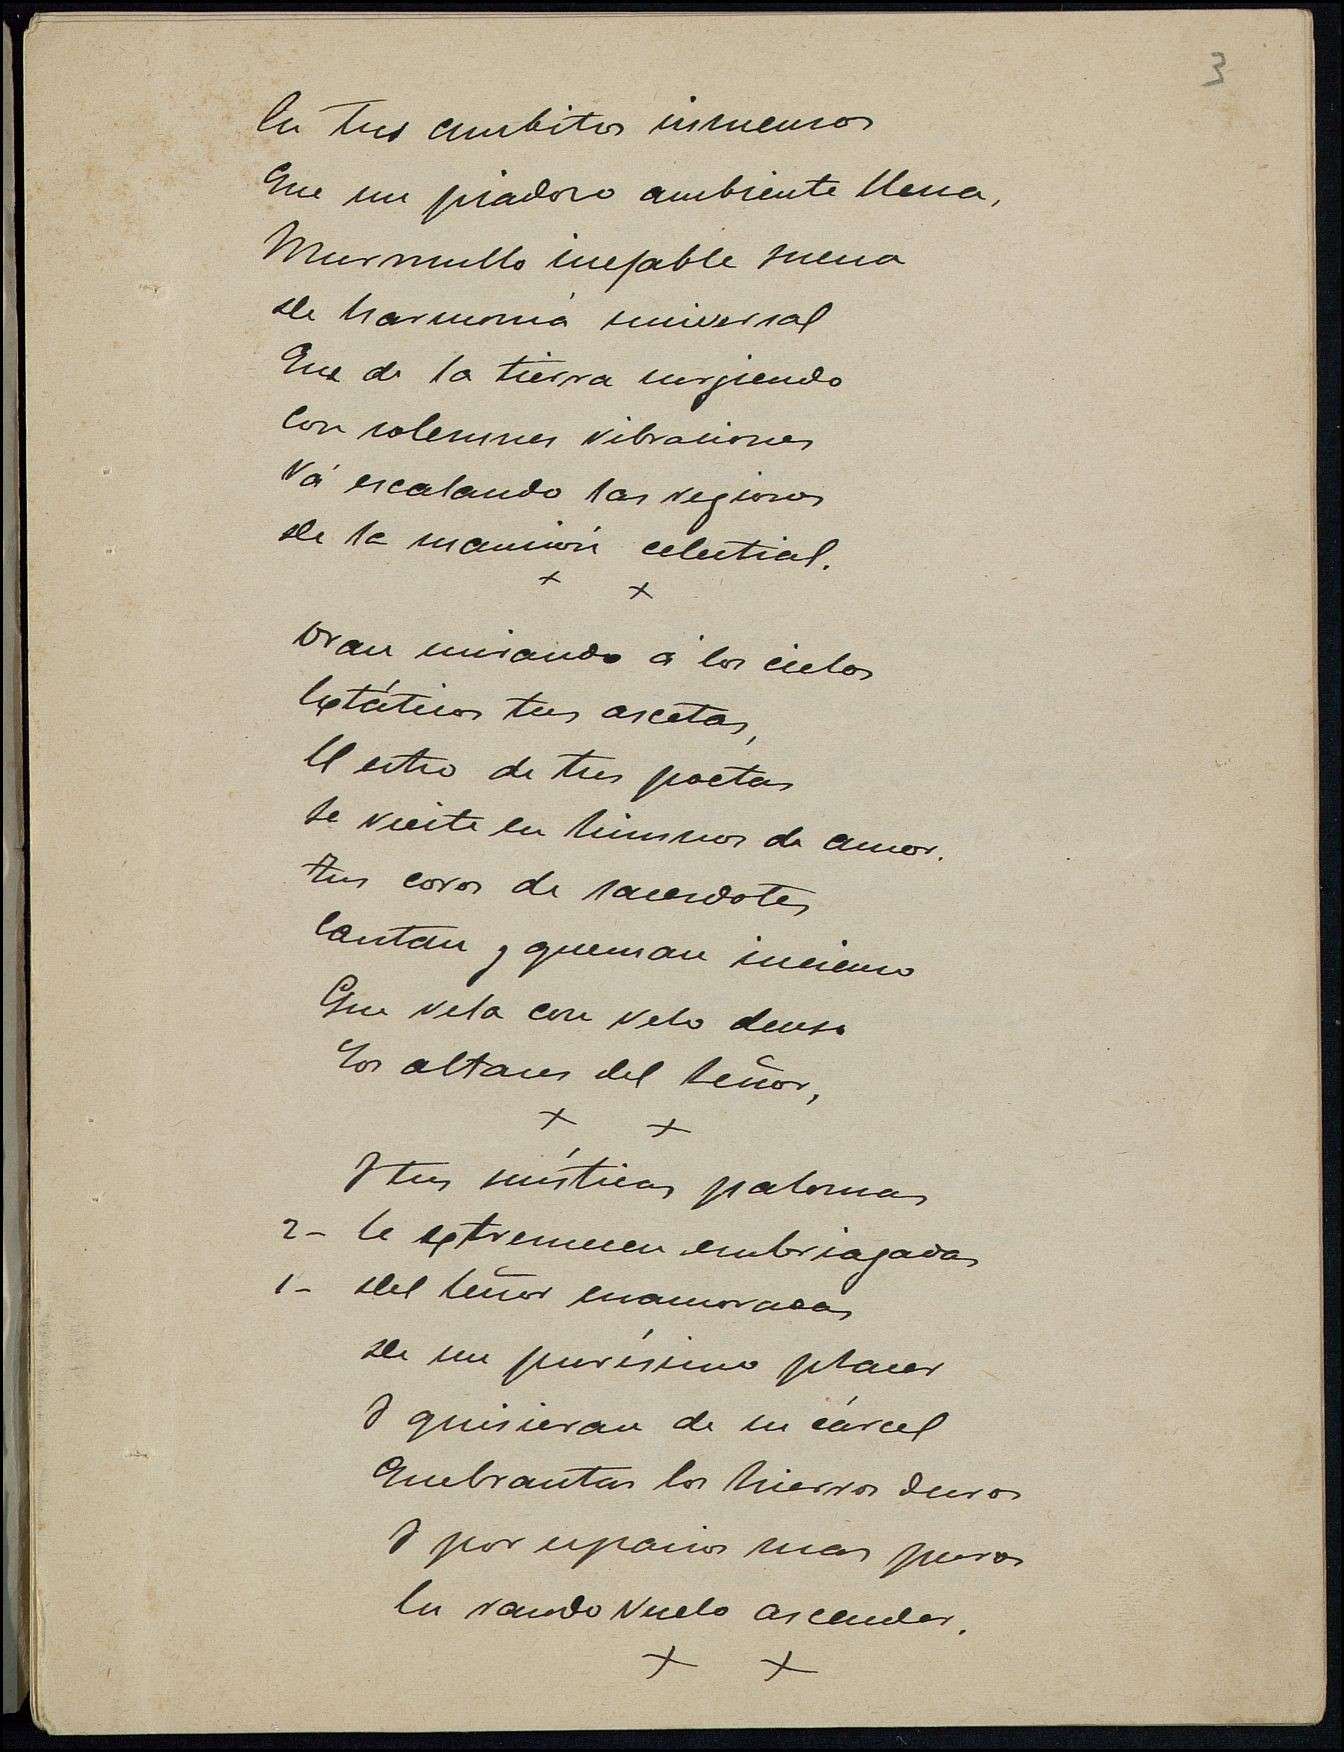 3
En tus ambitos inmensos
Que un piadoso ambiente llena,
Murmullo inefable suena
De harmonía universal
Que de la tierra surgiendo
Con solemnes vibraciones
Vá escalando las regiones
De la mansión celestial.
+ +
Oran mirando á los cielos
Extáticos tus ascetas,
El estro de tus poetas
Se vierte en himnos de amor.
Tus coros de sacerdotes
Cantan y queman incienso
Que vela con velo denso
Los altares del Señor,
+ +
Y tus místicas palomas
2- Se extremecen embriagadas
1- Del Señor enamoradas
De un purísimo placer
Y quisieran de su cárcel
Quebrantar los hierros duros
Y por espacios mas puros
En raudo vuelo ascender.
+ +